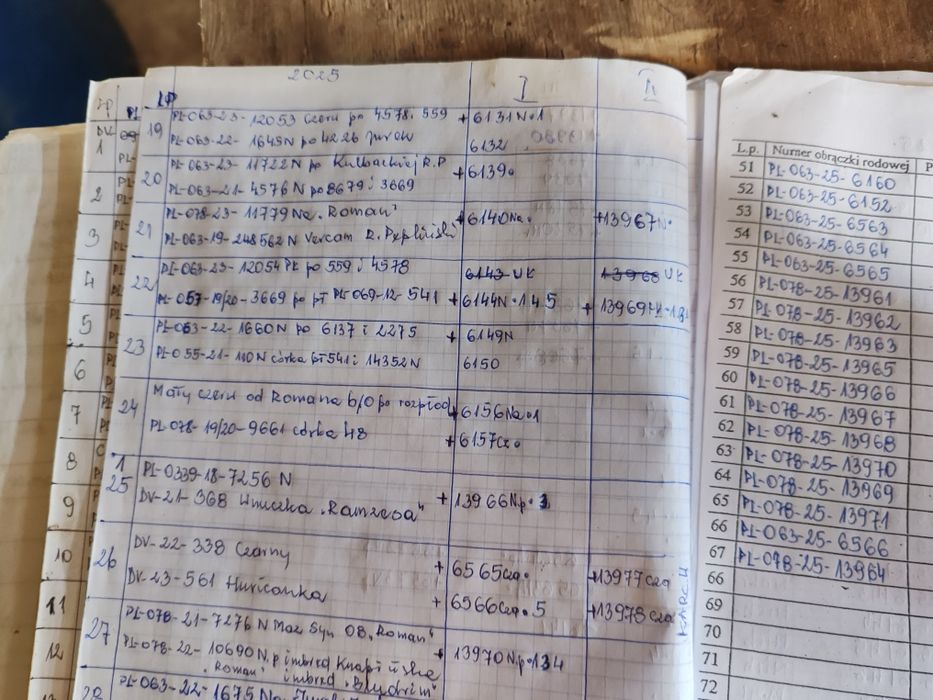 2025
I II
19 PL-063-23-12053 czern po 4578. 559 +6131N•1
PL-063-22-1649N po 4226 6132
20 PL-063-23-11722N po Kulbackiej R.P +6139•
PL-063-21-4576N po 8679 i 3669
21 PL-078-23-11779Na „Roman" +6140Na• +13967N•
PL-063-19-248562N Vercam R.
22 PL-063-23-12054 po 559 i 4578 6143 UK 13968 UK
PL-057-19/20-3669 po pt PL-069-12-541 +6144N•145 +13969
23 PL-063-22-1660N po 6137 i 2275 +6149N
PL-055-21-110N córka pt 541 i 14352N 6150
24 Mały czern od Romana b/o po rozpłod +6156Na•1
PL-078-19/20-9661 córka 48 +6157Cz•
25 PL-0339-18-7256 N
DV-21-368 Wnuczka „Ramzesa" +13966Np•
26 DV-22-338 Czarny +6565cza• +13977cza
DV-23-561 Huricanka +6566cza•5 +13978cza
27 PL-078-21-7276N Maz Syn OB „Roman"
PL-078-22-10690N.p imbred Knapi +13970Np•134
„Roman" imbred
PL-063-22-1675
1
2
3
4
5
6
7
8
9
10
11
12
L.p. Numer obrączki rodowej P
51 PL-063-25-6160
52 PL-063-25-6152
53 PL-063-25-6563
54 PL-063-25-6564
55 PL-063-25-6565
56 PL-078-25-13961
57 PL-078-25-13962
58 PL-078-25-13963
59 PL-078-25-13965
60 PL-078-25-13966
61 PL-078-25-13967
62 PL-078-25-13968
63 PL-078-25-13970
64 PL-078-25-13969
65 PL-078-25-13971
66 PL-063-25-6566
67 PL-078-25-13964
66
69
70
71
72